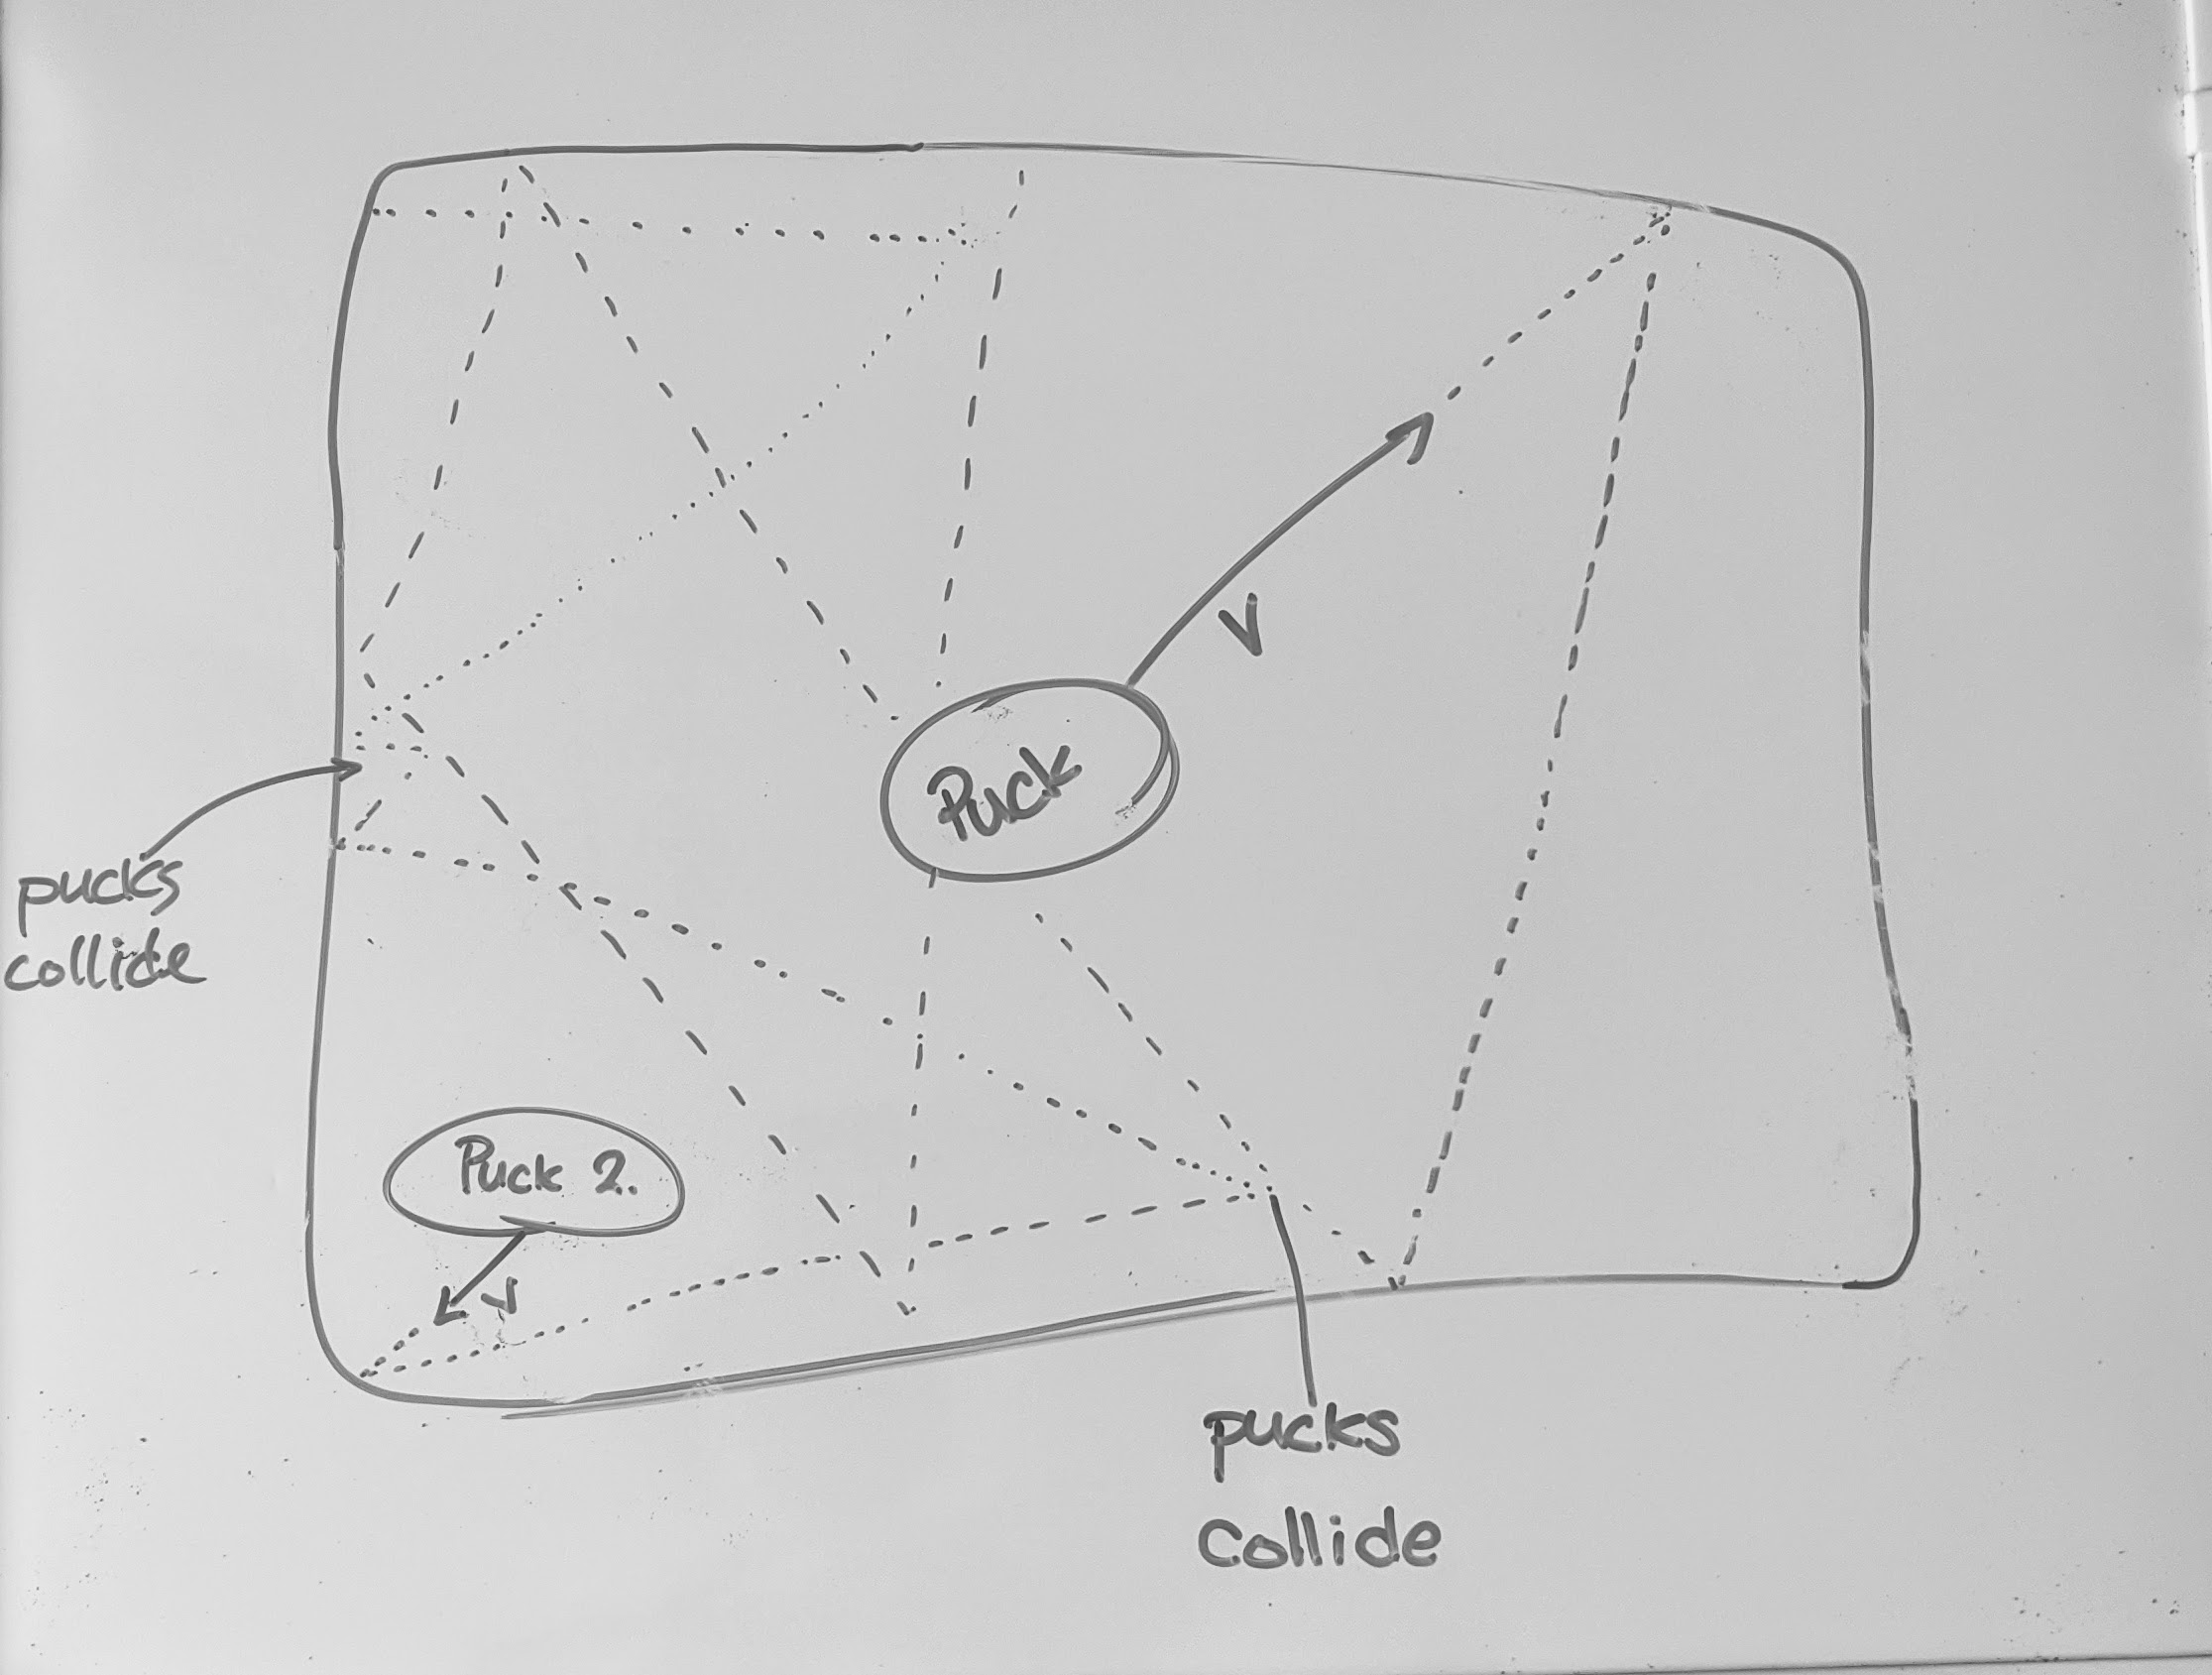 V
Puck
pucks
collide
Puck 2.
V
pucks
Collide